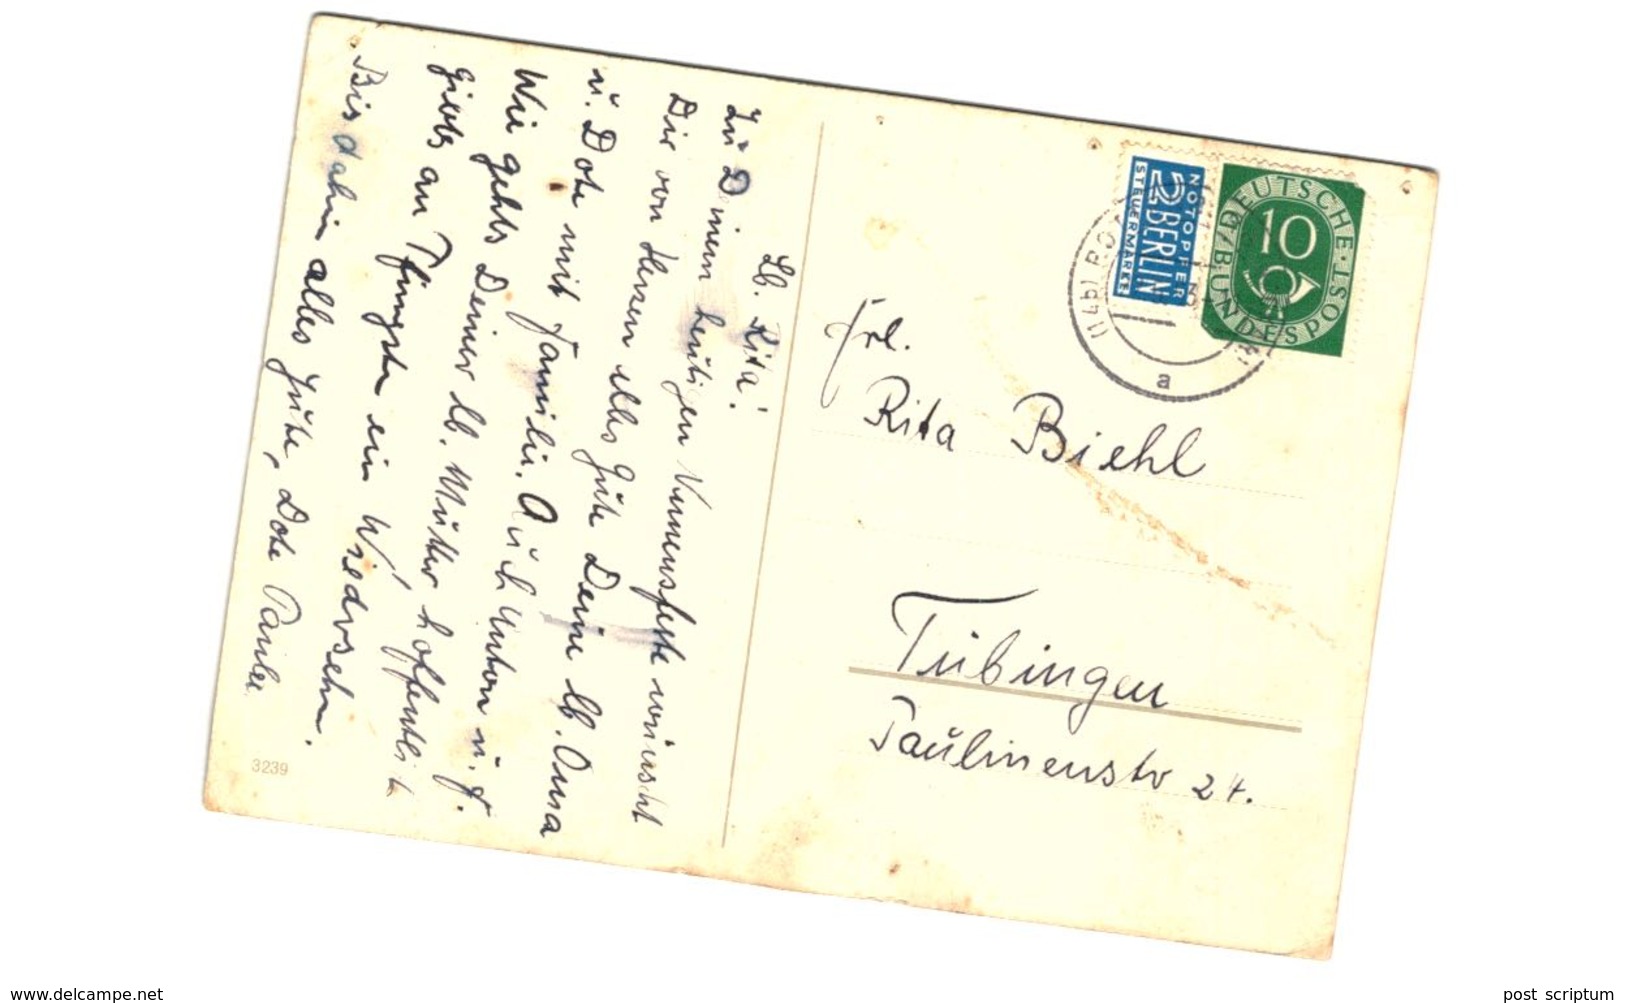 Lb. Rita!
Zu Deinem heutigen Namensfeste wünscht
Dir von Herzen alles Gute Deine lb. Oma
u. Dote mit Familie. Auch Anton u. G.
Wie gehts Deiner lb. Mutter, hoffentlich
giebts an Pfingsten ein Wiedersehn.
Bis dahin alles Gute, Dote Paula
3239
NOTOPFER
2 BERLIN
STEUERMARKE
10
DEUTSCHE BUNDESPOST
(14b)
a
Frl.
Rita Biehl
Tübingen
Paulinenstr 24.
www.delcampe.net
post scriptum